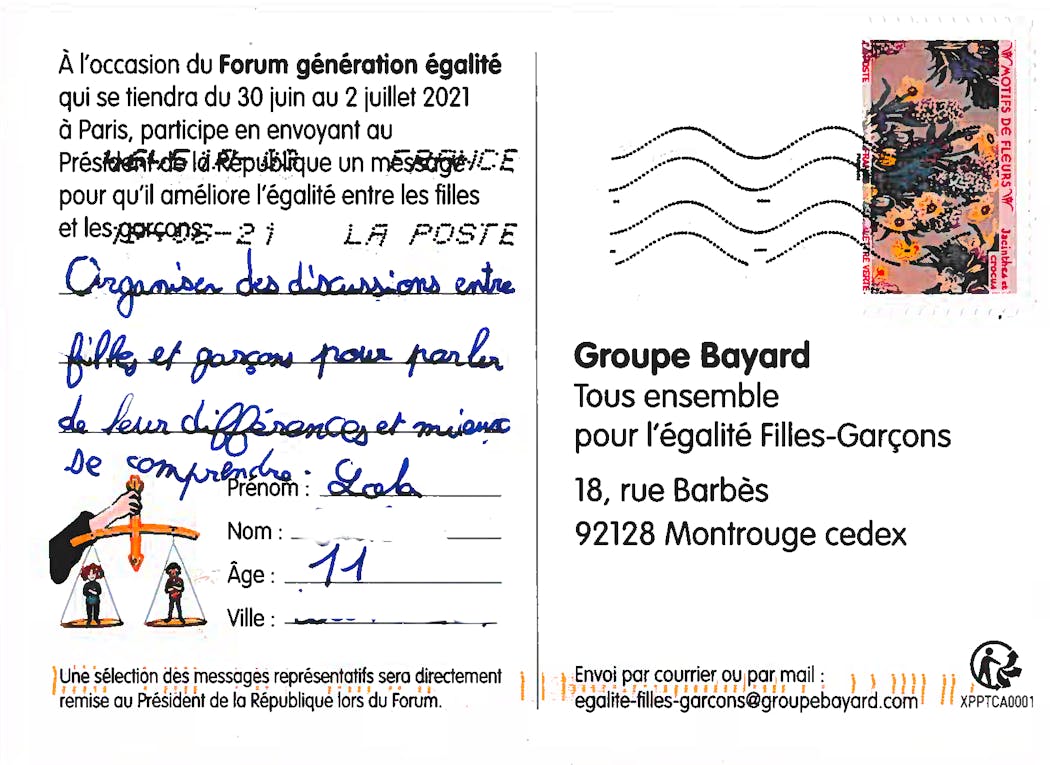 À l'occasion du Forum génération égalité
qui se tiendra du 30 juin au 2 juillet 2021
à Paris, participe en envoyant au
Président de la République un message
pour qu'il améliore l'égalité entre les filles
et les garçons.
FRANCE
-21 LA POSTE
Organiser des discussions entre
filles et garçons pour parler
de leur différences et mieux
se comprendre.
Prénom : Lola
Nom :
Âge : 11
Ville :
Une sélection des messages représentatifs sera directement
remise au Président de la République lors du Forum.
MOTIFS DE FLEURS
Jacinthes et
crocus
LA POSTE
FRANCE
LETTRE VERTE
Groupe Bayard
Tous ensemble
pour l'égalité Filles-Garçons
18, rue Barbès
92128 Montrouge cedex
Envoi par courrier ou par mail :
egalite-filles-garcons@groupebayard.com
XPPTCA0001